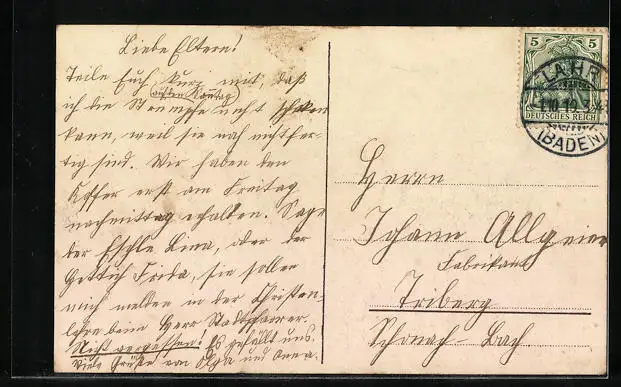 Liebe Eltern!
Teile Euch kurz mit, daß
ich die Strümpfe nicht schicken
kann, weil sie noch nicht fer-
tig sind. Wir haben den
Koffer erst am Freitag
nachmittag erhalten. Sage
der Eschle Lina, oder der
Gottich Frida, sie sollen
mich melden in der Christen-
lehre beim Herr Stadtpfarrer.
Nicht vergessen! Es gefällt uns.
Viele Grüße von Olga und Anna.
5 5
LAHR
DEUTSCHES REICH
(BADEN)
Herrn
Johann Allgeier
Fabrikant
Triberg
Schonach-Bach